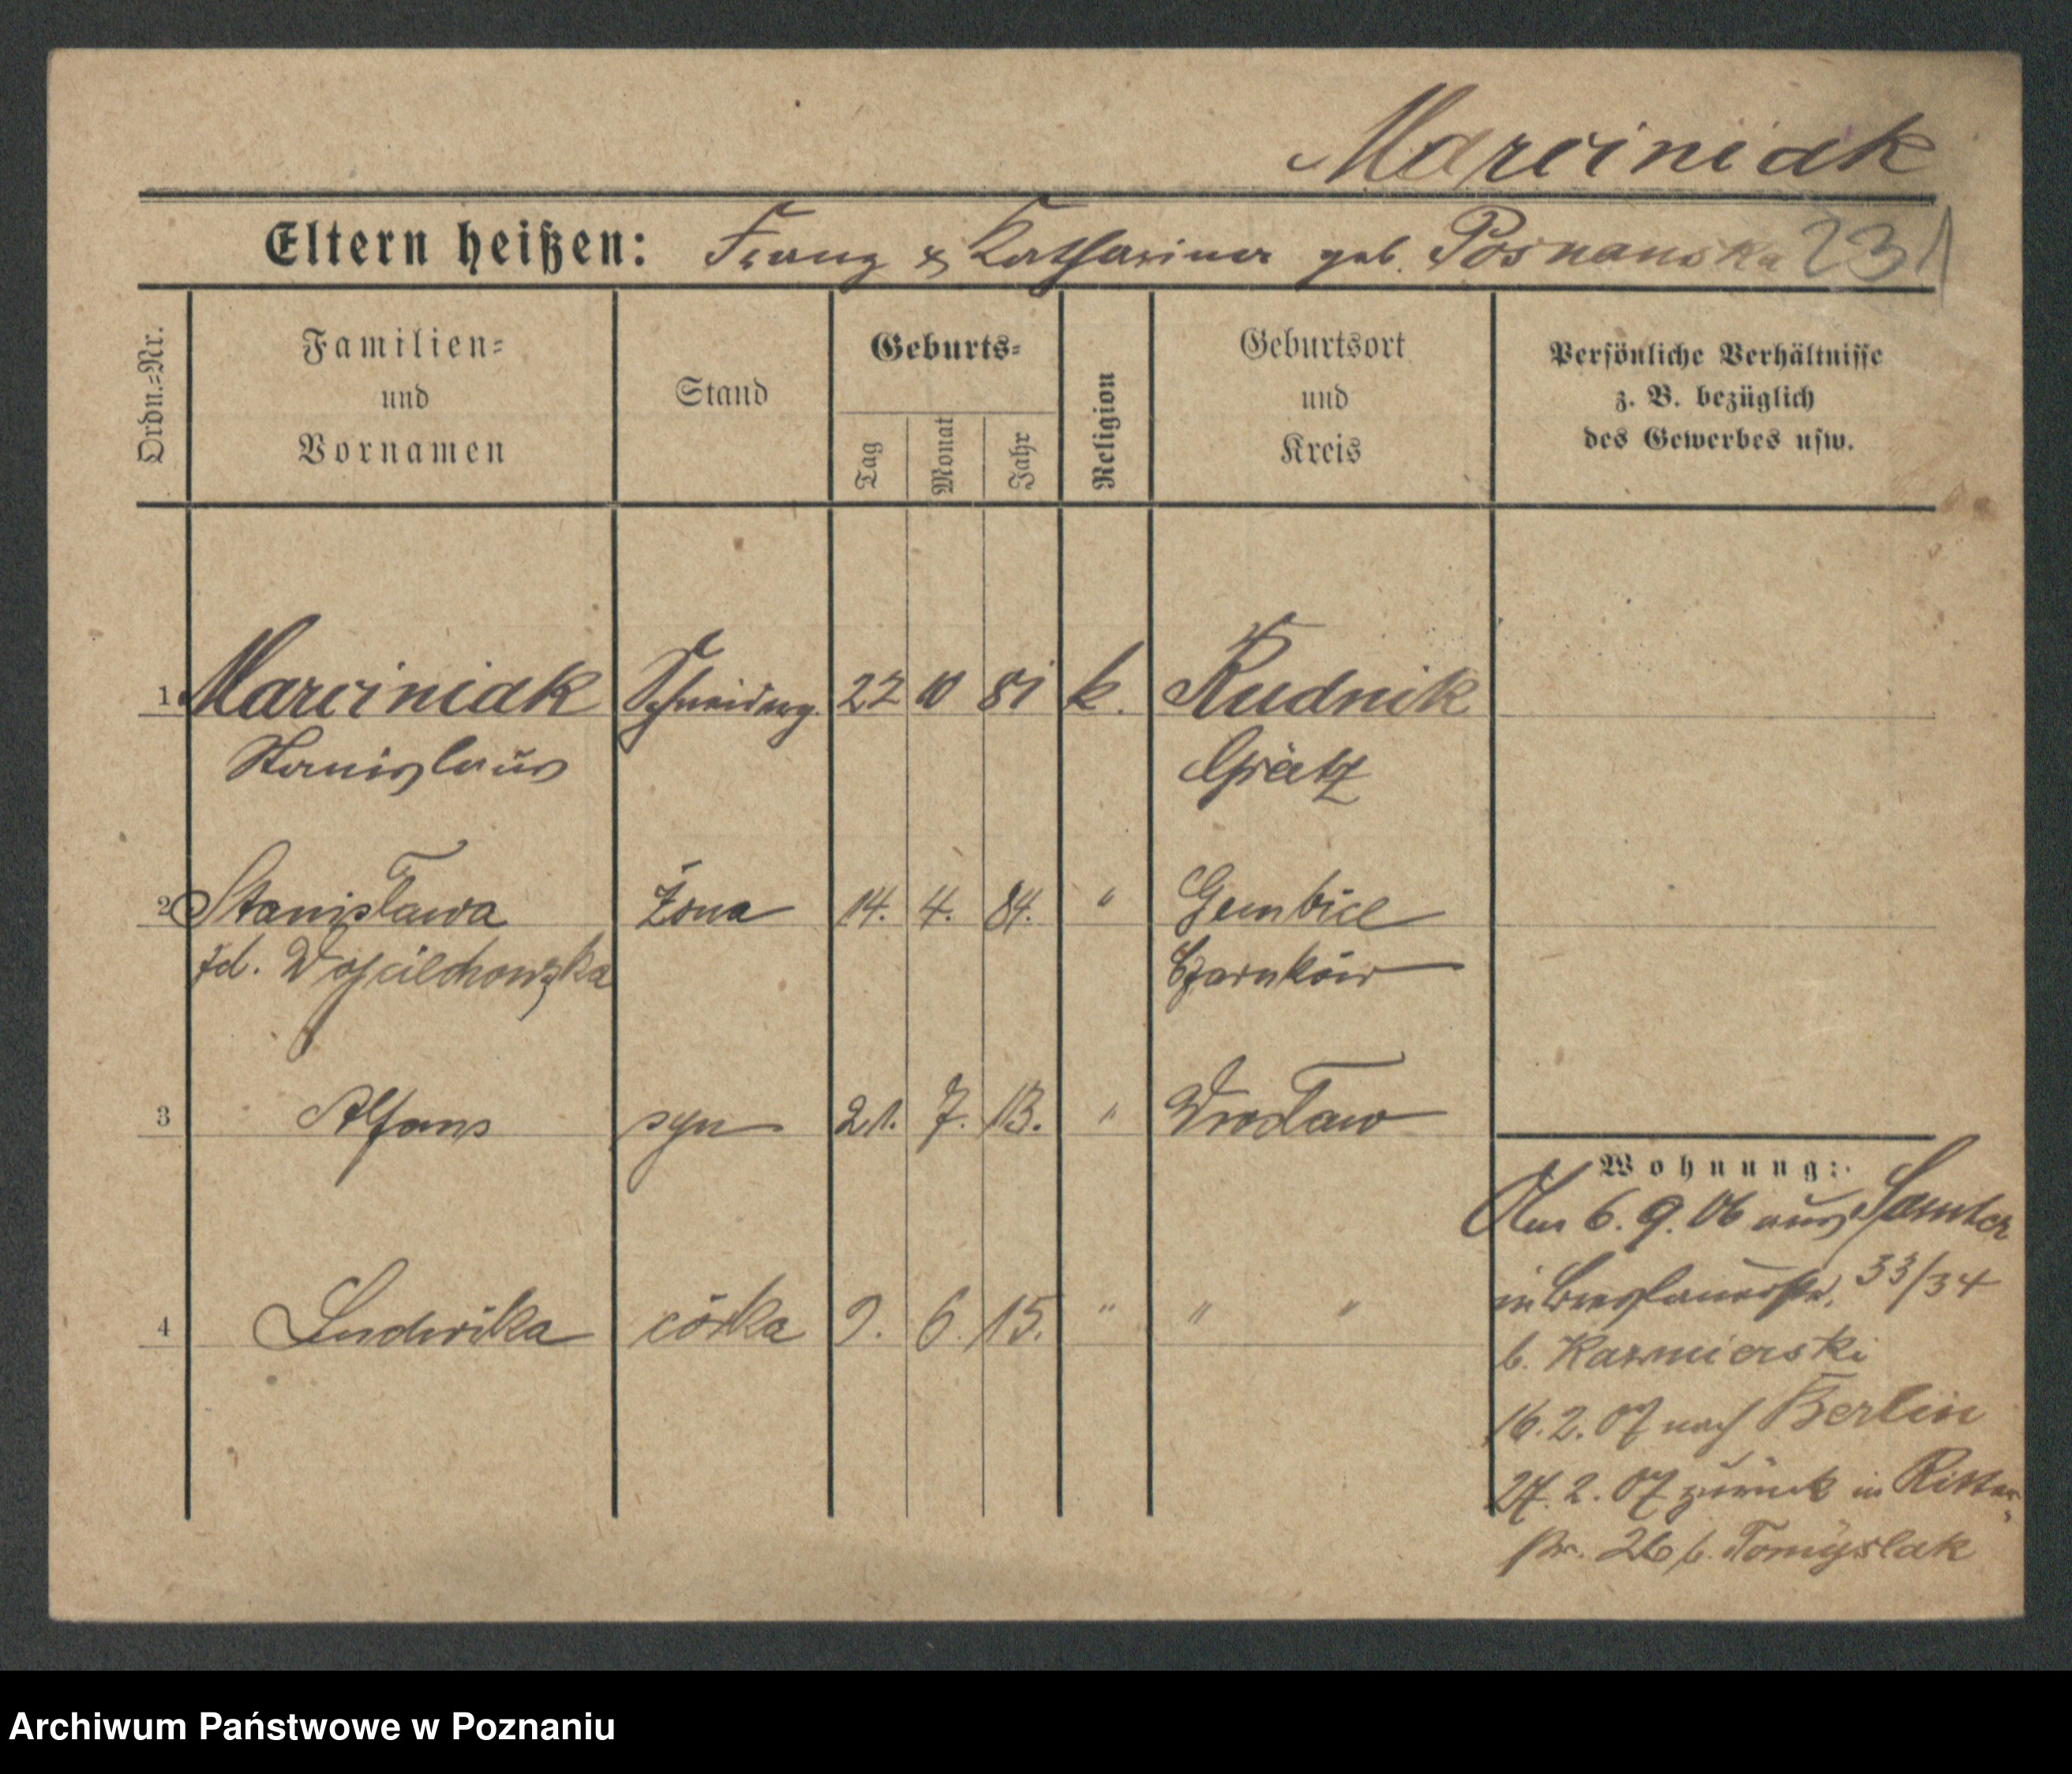 Marciniak
Eltern heißen: Franz & Katharina geb. Posnanska 231
Ordn.-Nr.
Familien-
und
Vornamen
Stand
Geburts-
Tag
Monat
Jahr
Religion
Geburtsort
und
Kreis
Persönliche Verhältnisse
z. B. bezüglich
des Gewerbes usw.
1 Marciniak Schneiderg. 22 10 81 k. Rudnik
Stanislaus Grätz
2 Stanisława żona 14. 4. 84. " Gembice
żd. Wojciechowska Czarnków
3 Alfons syn 21. 7. 13. " Wrocław
4 Ludwika córka 9. 6. 15. " " "
Wohnung:
Am 6. 9. 06 aus Samter
in Breslauerstr. 33/34
b. Kazmierski
16. 2. 07 nach Berlin
27. 2. 07 zurück in Ritter-
str. 26 b. Tomyslak
Archiwum Państwowe w Poznaniu